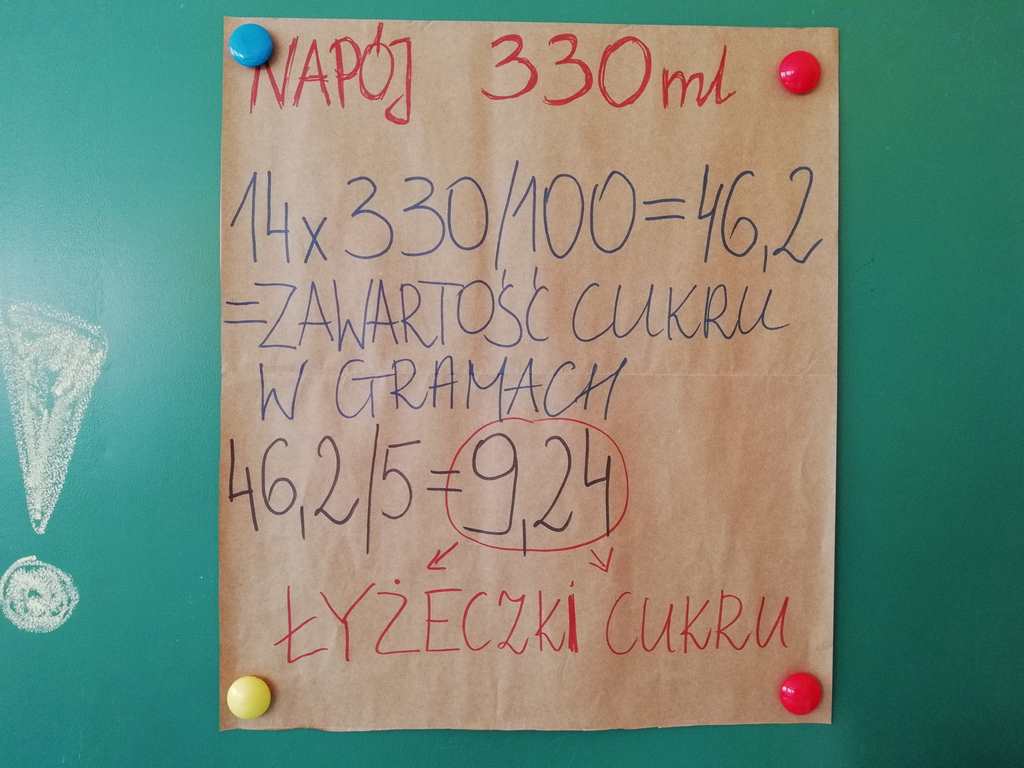 NAPÓJ 330 ml
14 x 330/100 = 46,2
= ZAWARTOŚĆ CUKRU
W GRAMACH
46,2/5 = 9,24
ŁYŻECZKI CUKRU
!